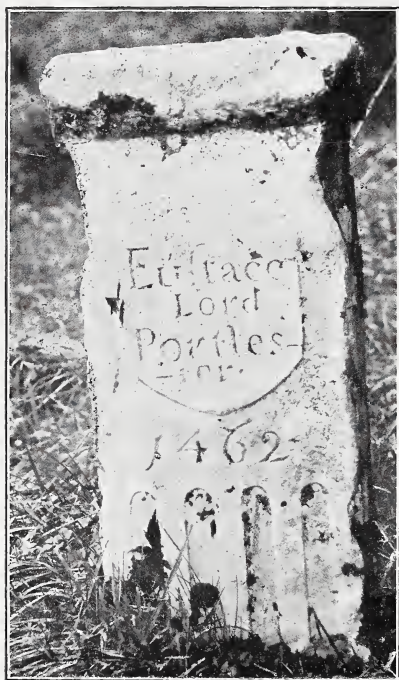 Eustace
Lord
Portles-
-ter.
1462